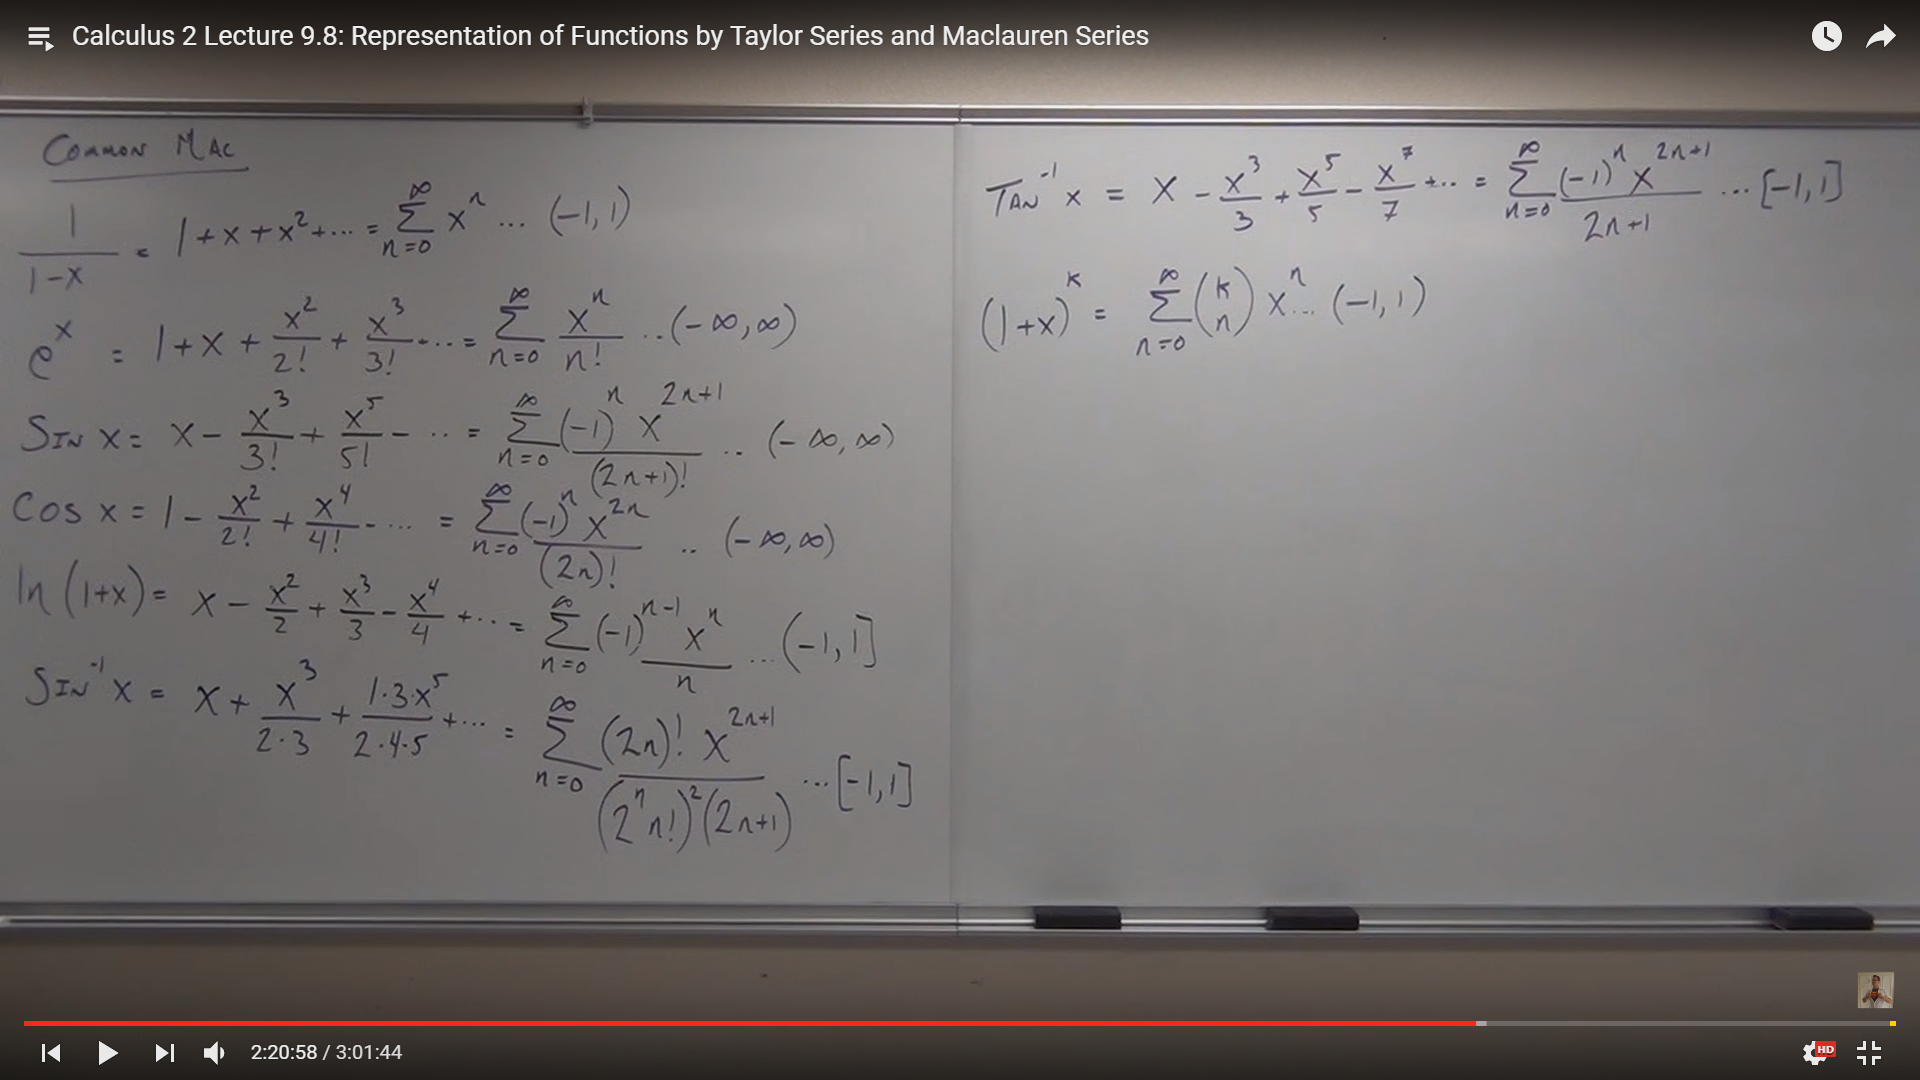 Calculus 2 Lecture 9.8: Representation of Functions by Taylor Series and Maclauren Series
COMMON MAC
1/(1-x) = 1+x+x²+... = ∞ Σ n=0 xⁿ ... (-1,1)
eˣ = 1+x+x²/2!+x³/3!... = ∞ Σ n=0 xⁿ/n! ..(-∞,∞)
SIN x = x-x³/3!+x⁵/5!-... = ∞ Σ n=0 (-1)ⁿ x²ⁿ⁺¹/(2n+1)! .. (-∞,∞)
COS x = 1-x²/2!+x⁴/4!-... = ∞ Σ n=0 (-1)ⁿ x²ⁿ/(2n)! .. (-∞,∞)
ln(1+x) = x-x²/2+x³/3-x⁴/4+... = ∞ Σ n=0 (-1)ⁿ⁻¹ xⁿ/n ...(-1,1]
SIN⁻¹ x = x+x³/2·3+1·3·x⁵/2·4·5+... = ∞ Σ n=0 (2n)! x²ⁿ⁺¹/(2ⁿn!)²(2n+1) ...[-1,1]
TAN⁻¹ x = x-x³/3+x⁵/5-x⁷/7+... = ∞ Σ n=0 (-1)ⁿ x²ⁿ⁺¹/2n+1 ...[-1,1]
(1+x)ᵏ = ∞ Σ n=0 (k n) xⁿ... (-1,1)
2:20:58 / 3:01:44
HD